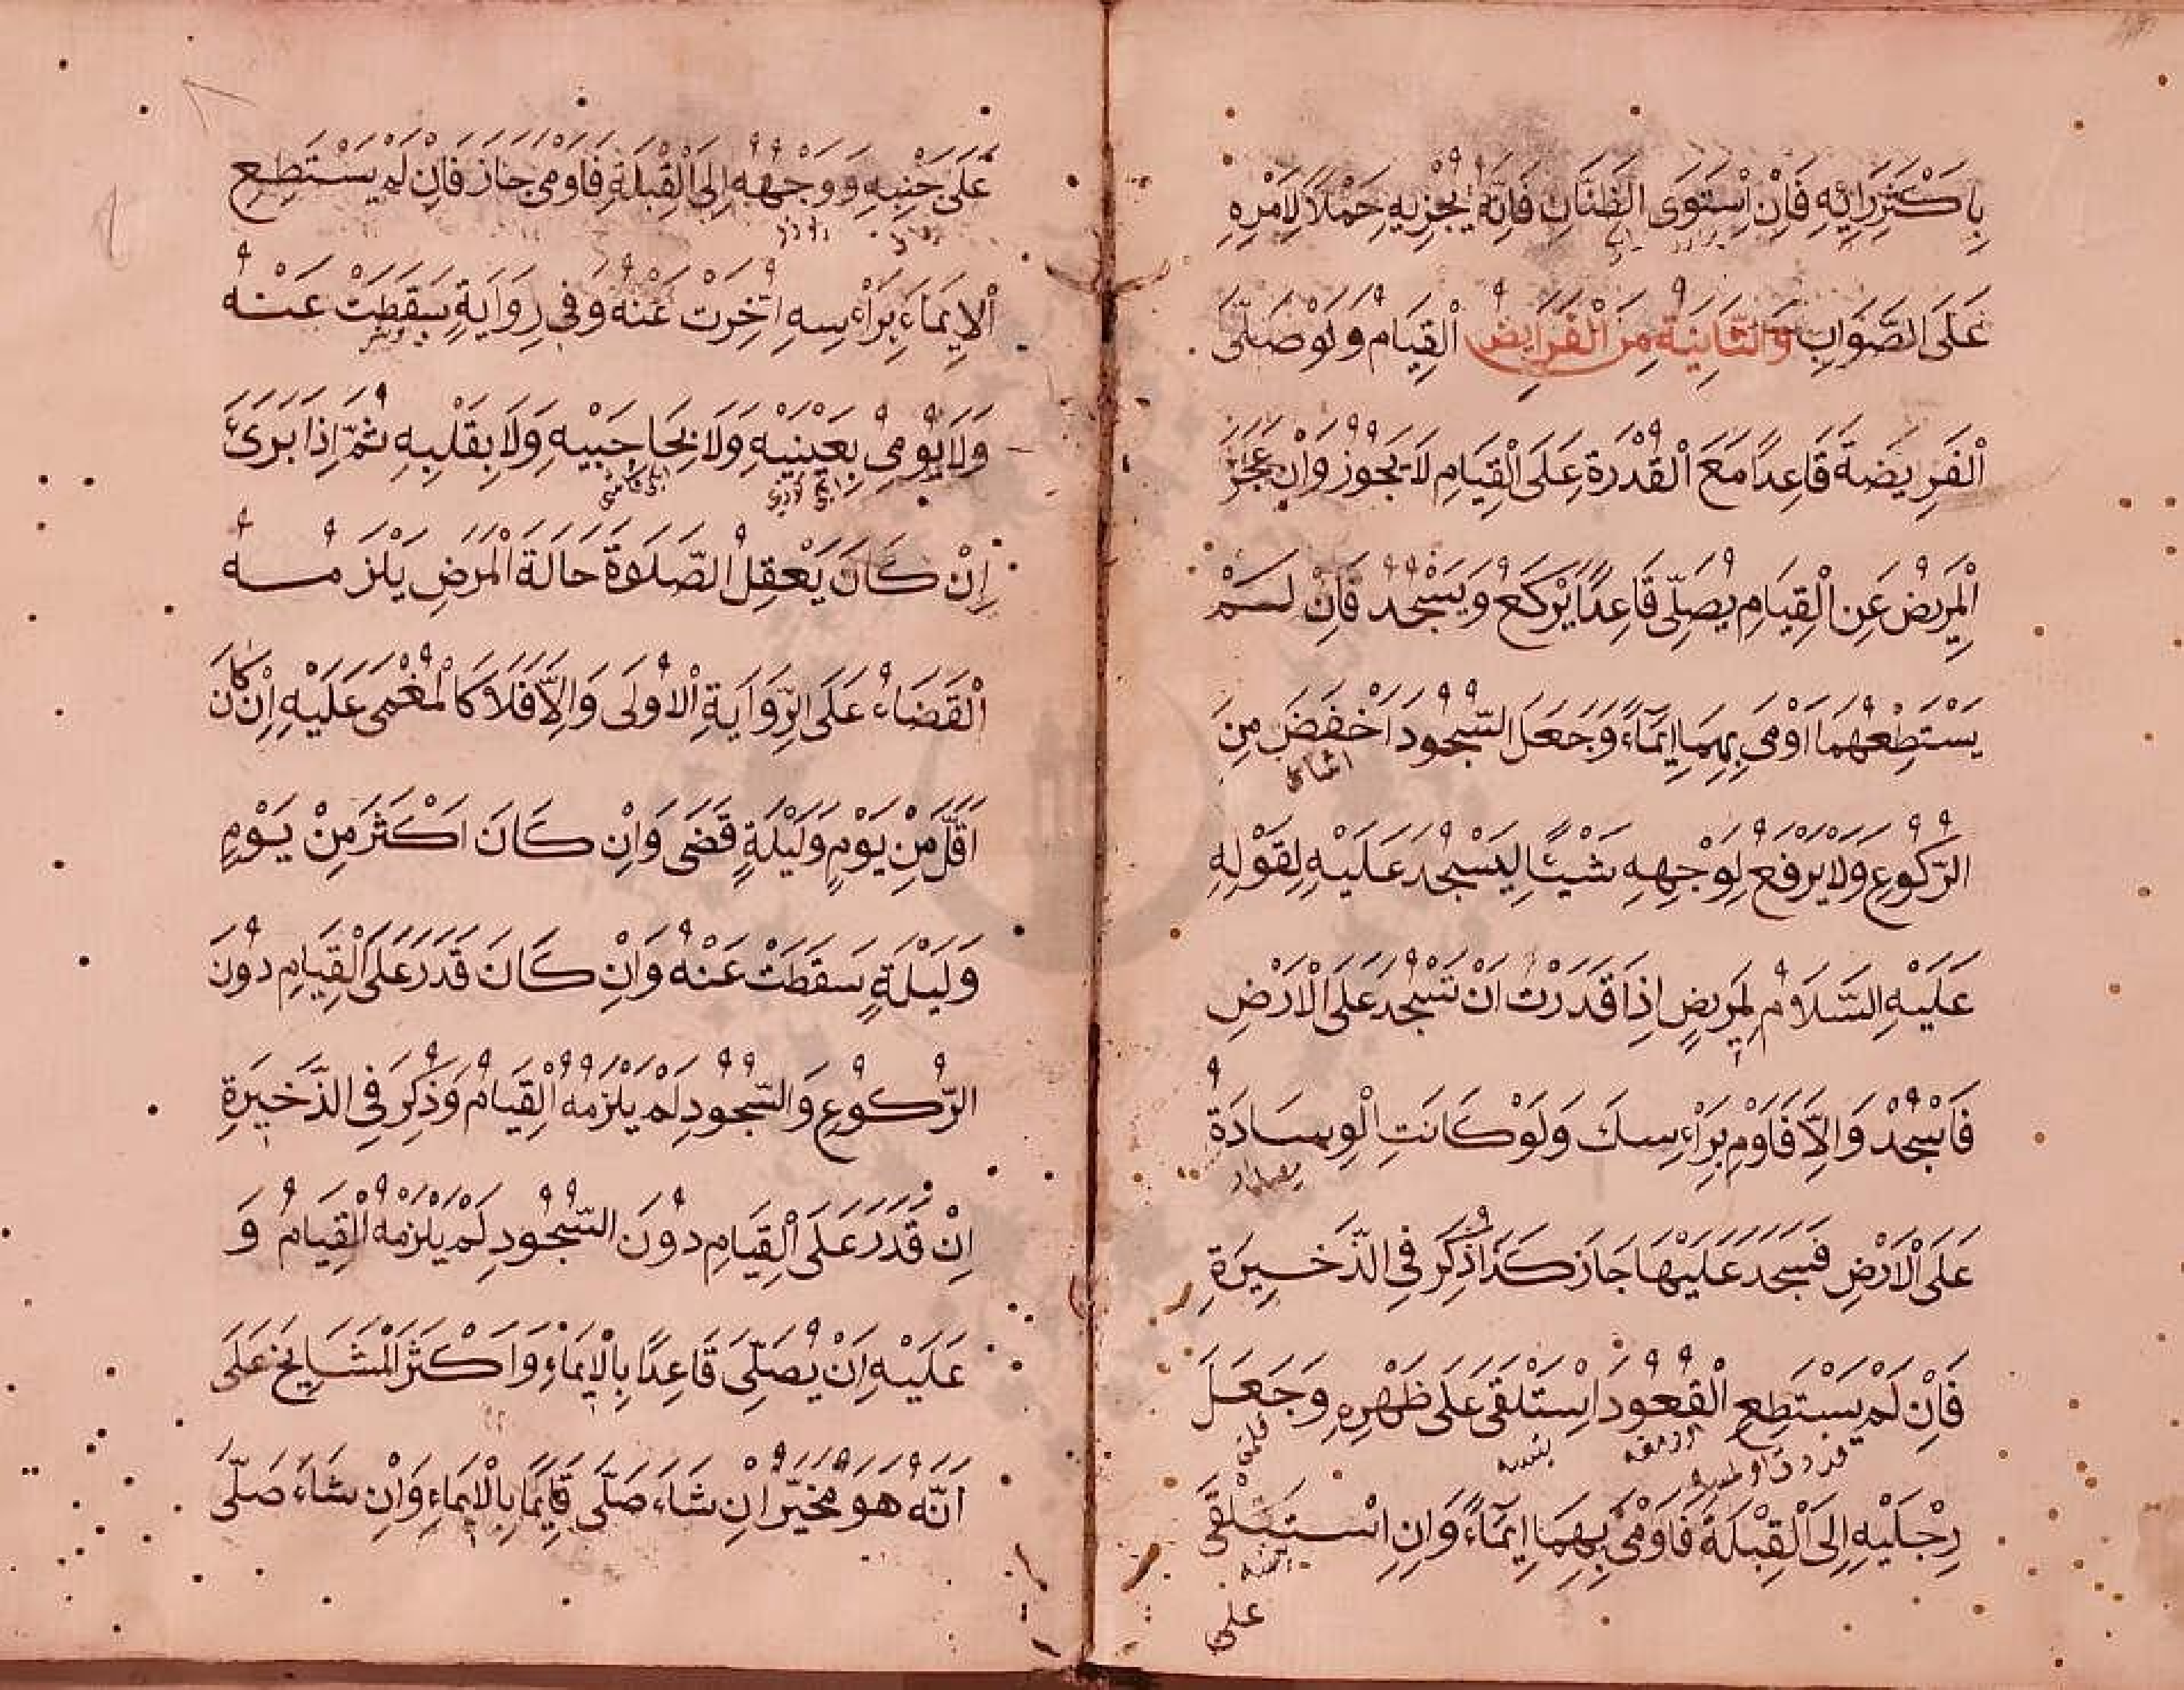 بِاَكْثَرِ رَاْيِهِ فَاِنْ اِسْتَوَى الظَّنَّانِ فَاِنَّهُ يُجْزِيهِ حَمْلًا لِاَمْرِهِ
عَلَى الصَّوَابِ وَالثَّانِيَةُ مِنَ الْفَرَايِضِ الْقِيَامُ وَلَوْ صَلَّى
الْفَرِيضَةَ قَاعِدًا مَعَ الْقُدْرَةِ عَلَى الْقِيَامِ لَا يَجُوزُ وَاِنْ عَجَزَ
الْمَرِيضُ عَنِ الْقِيَامِ يُصَلِّى قَاعِدًا يَرْكَعُ وَيَسْجُدُ فَاِنْ لَمْ
يَسْتَطِعْهُمَا اَوْمَى بِهِمَا اِيمَآءً وَجَعَلَ السُّجُودَ اَخْفَضَ مِنَ
الرُّكُوعِ وَلَا يَرْفَعُ لِوَجْهِهِ شَيْئًا لِيَسْجُدَ عَلَيْهِ لِقَوْلِهِ
عَلَيْهِ السَّلَامُ لِمَرِيضٍ اِذَا قَدَرْتَ اَنْ تَسْجُدَ عَلَى الْاَرْضِ
فَاسْجُدْ وَاِلَّا فَاَوْمِ بِرَاْءسِكَ وَلَوْ كَانَتِ الْوِسَادَةُ
عَلَى الْاَرْضِ فَسَجَدَ عَلَيْهَا جَازَ كَذَا ذُكِرَ فِى الذَّخِيرَةِ
فَاِنْ لَمْ يَسْتَطِعِ الْقُعُودَ اِسْتَلْقَى عَلَى ظَهْرِهِ وَجَعَلَ
رِجْلَيْهِ اِلَى الْقِبْلَةِ فَاَوْمَى بِهِمَا اِيمَآءً وَاِنِ اسْتَلْقَى
على
عَلَى جَنْبِهِ وَوَجْهُهُ اِلَى الْقِبْلَةِ فَاَوْمَى جَازَ فَاِنْ لَمْ يَسْتَطِعِ
الْاِيمَاءَ بِرَاْءسِهِ اُخِّرَتْ عَنْهُ وَفِى رِوَايَةٍ سَقَطَتْ عَنْهُ
وَلَا يُوْمِىُ بِعَيْنَيْهِ وَلَا بِحَاجِبَيْهِ وَلَا بِقَلْبِهِ ثُمَّ اِذَا بَرِئَ
اِنْ كَانَ يَعْقِلُ الصَّلَاةَ حَالَةَ الْمَرَضِ يَلْزَمُهُ
الْقَضَاءُ عَلَى الرِّوَايَةِ الْاُولَى وَاِلَّا فَلَا كَالْمُغْمَى عَلَيْهِ اِنْ كَانَ
اَقَلَّ مِنْ يَوْمٍ وَلَيْلَةٍ قَضَى وَاِنْ كَانَ اَكْثَرَ مِنْ يَوْمٍ
وَلَيْلَةٍ سَقَطَتْ عَنْهُ وَاِنْ كَانَ قَدَرَ عَلَى الْقِيَامِ دُونَ
الرُّكُوعِ وَالسُّجُودِ لَمْ يَلْزَمْهُ الْقِيَامُ وَذُكِرَ فِى الذَّخِيرَةِ
اِنْ قَدَرَ عَلَى الْقِيَامِ دُونَ السُّجُودِ لَمْ يَلْزَمْهُ الْقِيَامُ وَ
عَلَيْهِ اَنْ يُصَلِّىَ قَاعِدًا بِالْاِيمَاءِ وَاَكْثَرُ الْمَشَايِخِ عَلَى
اَنَّهُ هُوَ مُخَيَّرٌ اِنْ شَاءَ صَلَّى قَايِمًا بِالْاِيمَاءِ وَاِنْ شَاءَ صَلَّى